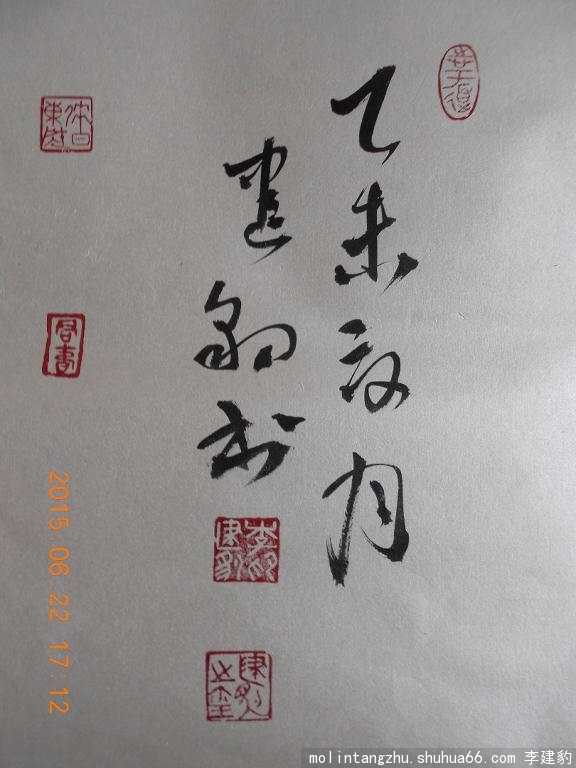 乙未夏月
建豹书
李印建豹
建豹之玺
2015.06.22 17:12
molintangzhu.shuhua66.com 李建豹